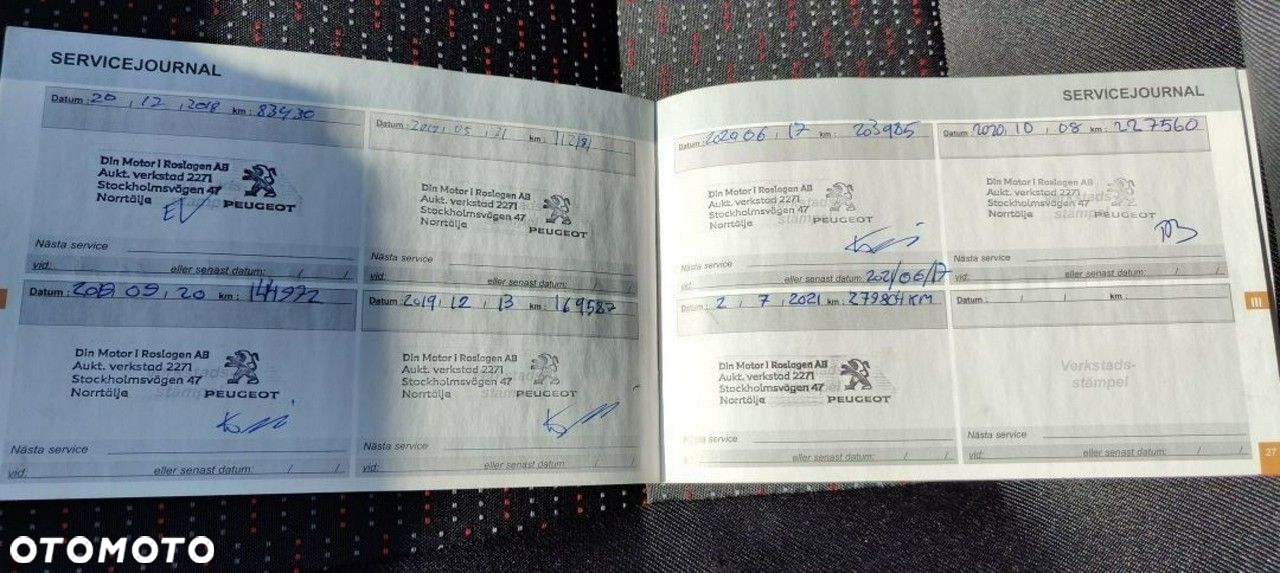 SERVICEJOURNAL
Datum: 20, 12, 2018 km: 83430
Din Motor i Roslagen AB
Aukt. verkstad 2271
Stockholmsvägen 47
Norrtälje
PEUGEOT
Nästa service
vid: eller senast datum: / /
Datum: 2019, 05, 31 km:
Din Motor i Roslagen AB
Aukt. verkstad 2271
Stockholmsvägen 47
Norrtälje
PEUGEOT
Nästa service
vid: eller senast datum: / /
Datum: 2019 09, 20 km: 141972
Din Motor i Roslagen AB
Aukt. verkstad 2271
Stockholmsvägen 47
Norrtälje
PEUGEOT
Nästa service
vid: eller senast datum: / /
Datum: 2019, 12, 13 km: 169587
Din Motor i Roslagen AB
Aukt. verkstad 2271
Stockholmsvägen 47
Norrtälje
PEUGEOT
Nästa service
vid: eller senast datum: / /
SERVICEJOURNAL
Datum: 2020 06, 17 km: 203985
Din Motor i Roslagen AB
Aukt. verkstad 2271
Stockholmsvägen 47
Norrtälje
PEUGEOT
Nästa service
vid: eller senast datum: 2021/06/17
Datum: 2020, 10, 08 km: 227560
Din Motor i Roslagen AB
Aukt. verkstad 2271
Stockholmsvägen 47
Norrtälje
PEUGEOT
Nästa service
vid: eller senast datum: / /
Datum: 2, 7, 2021 km: 279804 KM
Din Motor i Roslagen AB
Aukt. verkstad 2271
Stockholmsvägen 47
Norrtälje
PEUGEOT
Nästa service
eller senast datum: / /
Datum: / / km:
Verkstads-
stämpel
Nästa service
vid: eller senast datum: / /
III
27
OTOMOTO